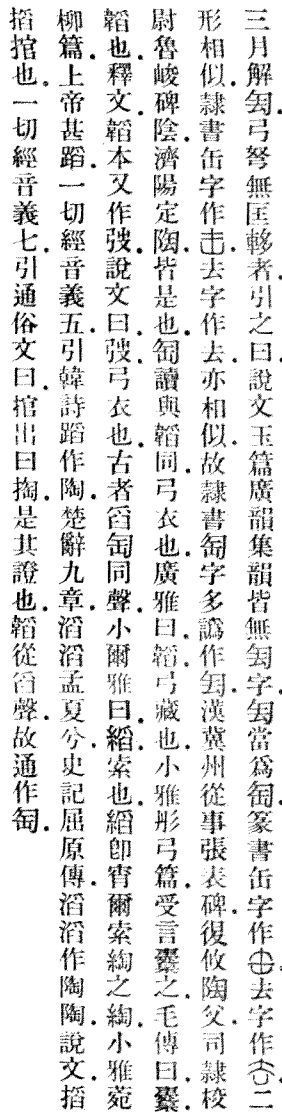 三月解弓弩無匡軫者.引之曰說文玉篇廣韻集韻皆無字.當爲匋.篆書缶字作去字作二
形相似.隸書缶字作击.去字作去.亦相似.故隸書匋字多譌作.漢冀州從事張表碑.復攸陶父.司隸校
尉魯峻碑陰.濟陽定陶.皆是也.匋讀與韜同.弓衣也.廣雅曰.韜.弓藏也.小雅彤弓篇.受言櫜之.毛傳曰.櫜.
韜也.釋文.韜本又作弢.說文曰.弢.弓衣也.古者舀匋同聲.小爾雅曰.縚.索也.縚卽宵爾索綯之綯.小雅菀
柳篇.上帝甚蹈.一切經音義五.引韓詩蹈作陶.楚辭九章.滔滔孟夏兮.史記屈原傳.滔滔作陶陶.說文.搯
搯捾也.一切經音義七.引通俗文曰.捾出曰掏.是其證也.韜從舀聲.故通作匋.